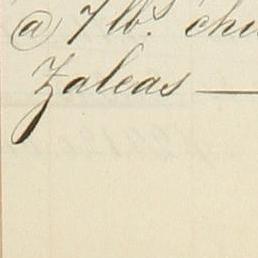 @ 7 lb. che
Zaleas —